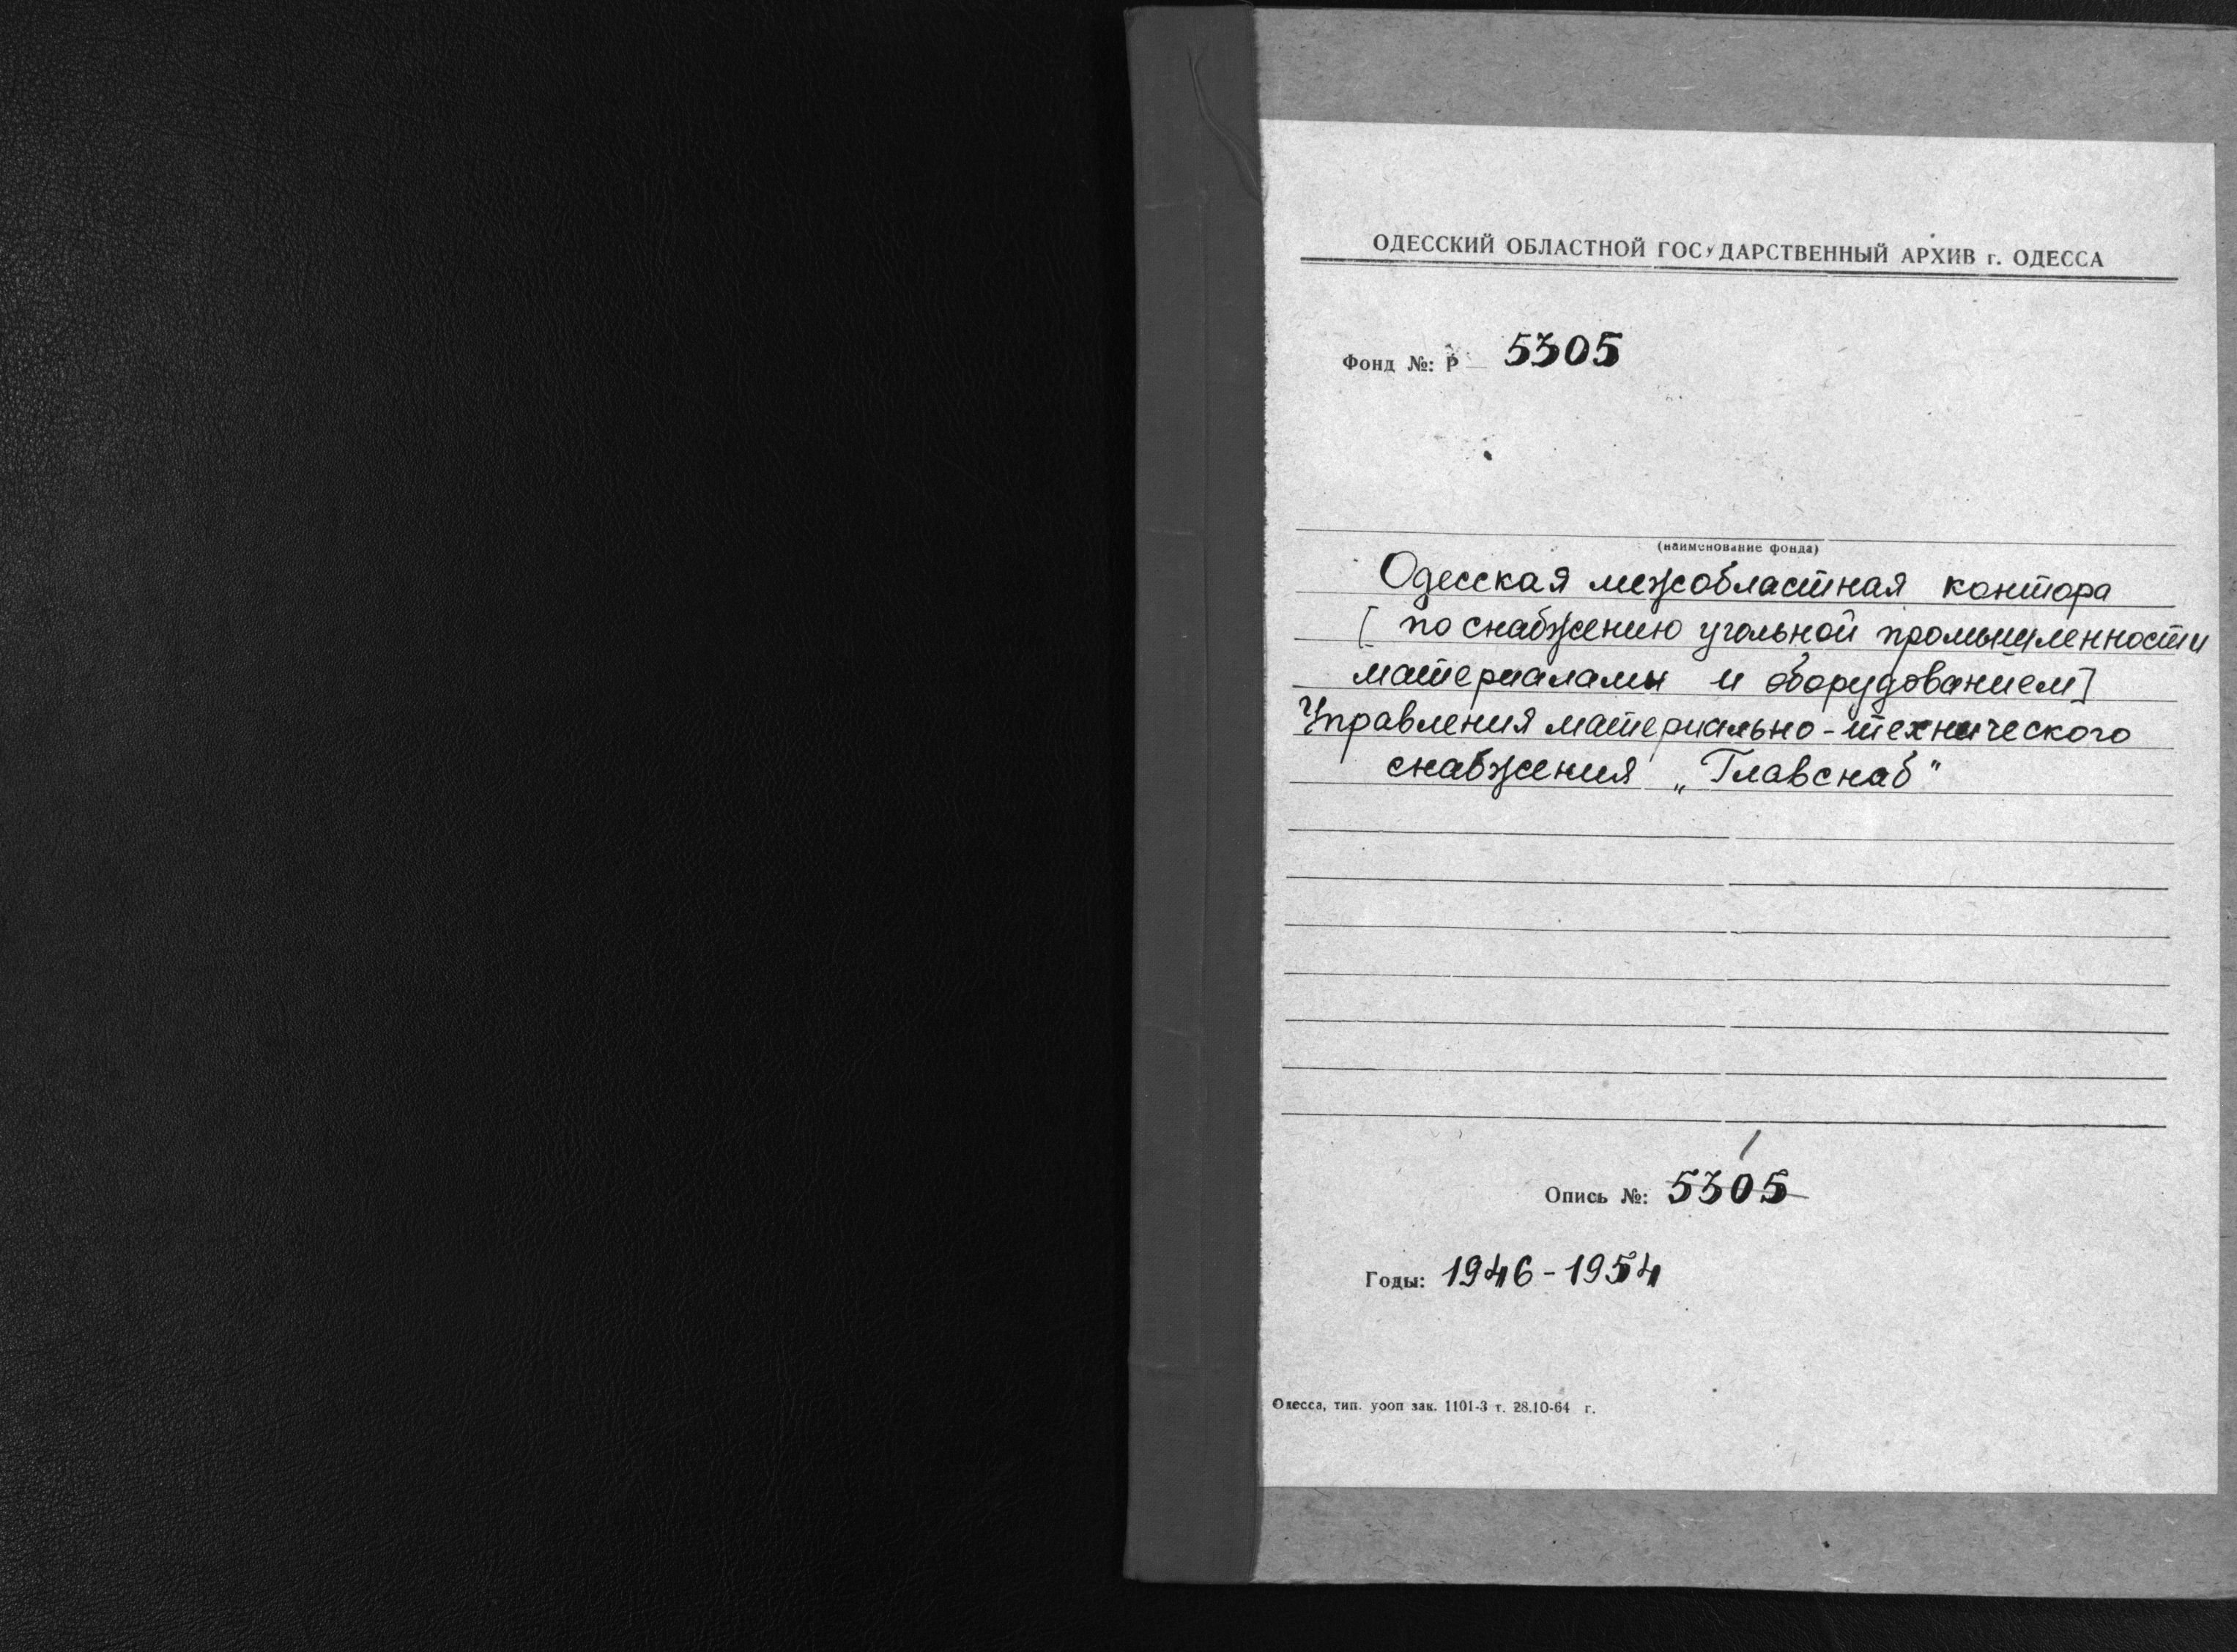 ОДЕССКИЙ ОБЛАСТНОЙ ГОСУДАРСТВЕННЫЙ АРХИВ г. ОДЕССА
Фонд №: Р — 5305
(наименование фонда)
Одесская межобластная контора
[ по снабжению угольной промышленности
материалами и оборудованием]
Управления материально-технического
снабжения „Главснаб"
1
Опись №: 5305
Годы: 1946-1954
Одесса, тип. уооп зак. 1101-3 т. 28.10-64 г.